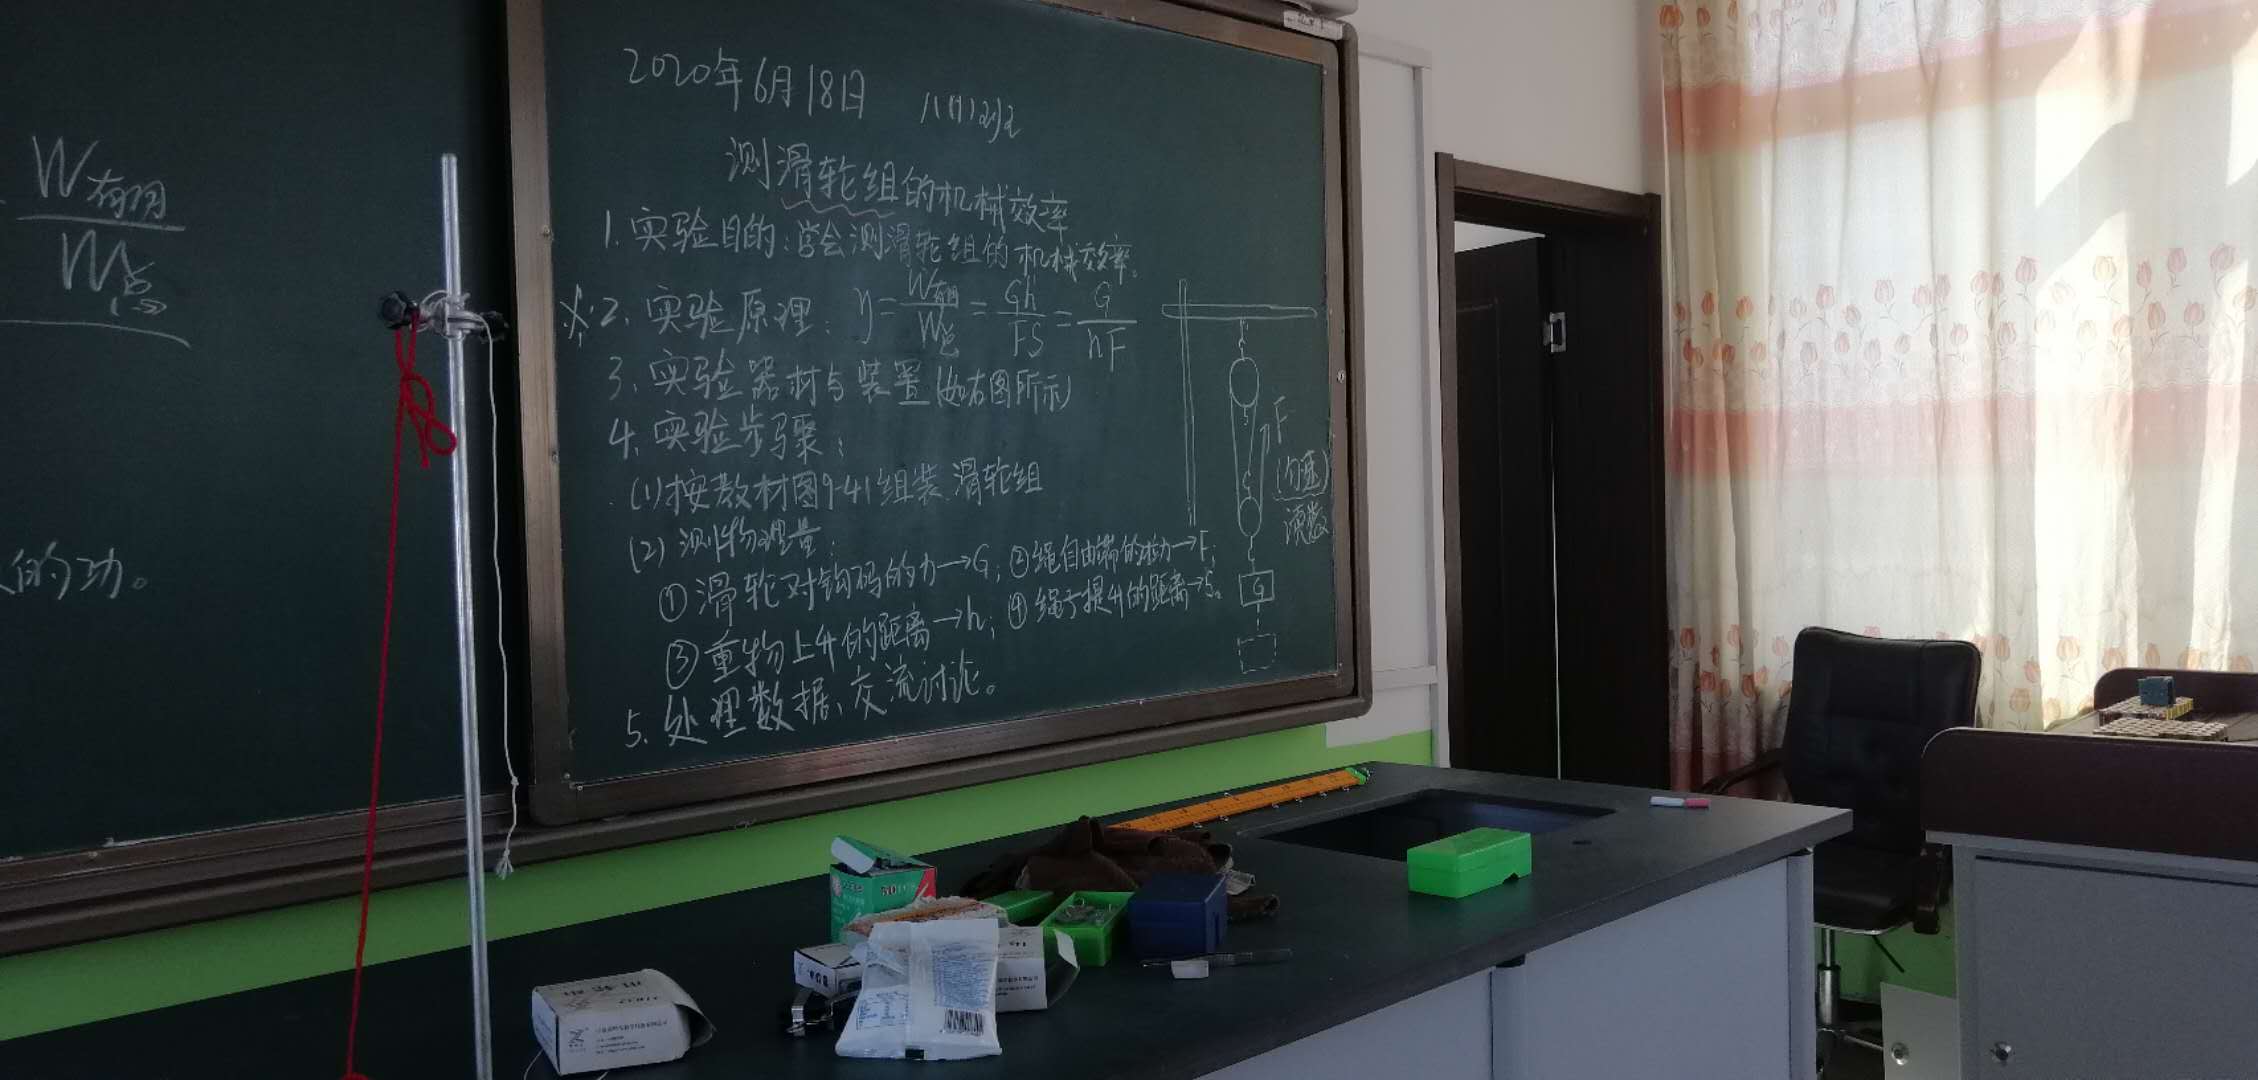 W有用
W总
的功。
2020年6月18日 八(1)班
测滑轮组的机械效率
1. 实验目的:学会测滑轮组的机械效率。
※2. 实验原理: η=W有用/W总=Gh/FS=G/nF
3. 实验器材与装置(如右图所示)
4. 实验步骤:
(1)按教材图9-41组装滑轮组
(2)测物理量:
①滑轮对钩码的力→G; ②绳自由端的拉力→F;
③重物上升的距离→h; ④绳子提升的距离→S。
5. 处理数据、交流讨论。
F
(匀速)
读数
G